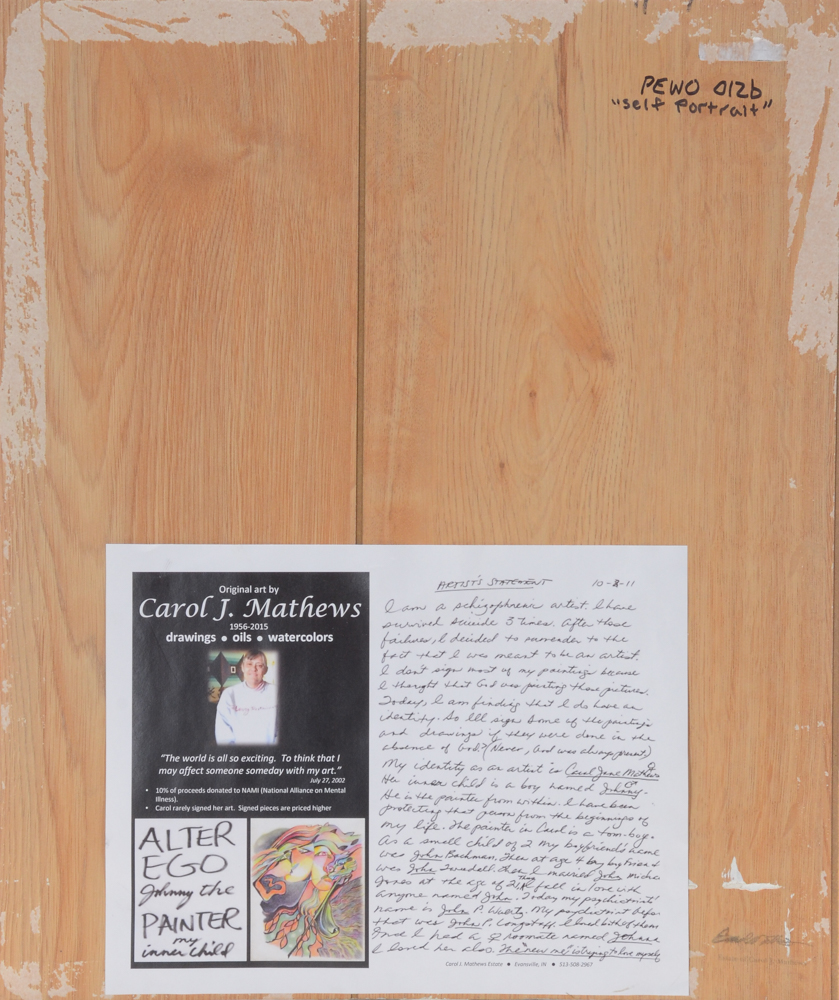 PEWO 012b
"self Portrait"
Original art by
Carol J. Mathews
1956-2015
drawings • oils • watercolors
"The world is all so exciting. To think that I
may affect someone someday with my art."
July 27, 2002
• 10% of proceeds donated to NAMI (National Alliance on Mental
Illness).
• Carol rarely signed her art. Signed pieces are priced higher
ALTER
EGO
Johnny the
PAINTER
my
inner child
ARTIST'S STATEMENT 10-8-11
I am a schizophrenic artist. I have
survived suicide 3 times. After those
failures, I decided to surrender to the
fact that I was meant to be an artist.
I don't sign most of my paintings because
I thought that God was painting those pictures.
Today, I am finding that I do have an
identity. So I'll sign some of the paintings
and drawings if they were done in the
absence of God? (Never, God was always present)
My identity as an artist is Carol Jane Mathews
Her inner child is a boy named Johnny.
He is the painter from within. I have been
protecting that person from the beginnings of
my life. The painter in Carol is a tom-boy.
As a small child of 2 my boyfriend's name
was John Bachman. Then at age 4 boy by friend
was John Then I married John
Jones at the age of 21 fell in love with
anyone named John. Today my psychiatrist's
name is John P. My psychiatrist before
that was John P. I loved both of them
Once I had a roommate named Johnna
I loved her also. The "new me" is trying to love myself
Carol J. Mathews Estate • Evansville, IN • 513-508-2967